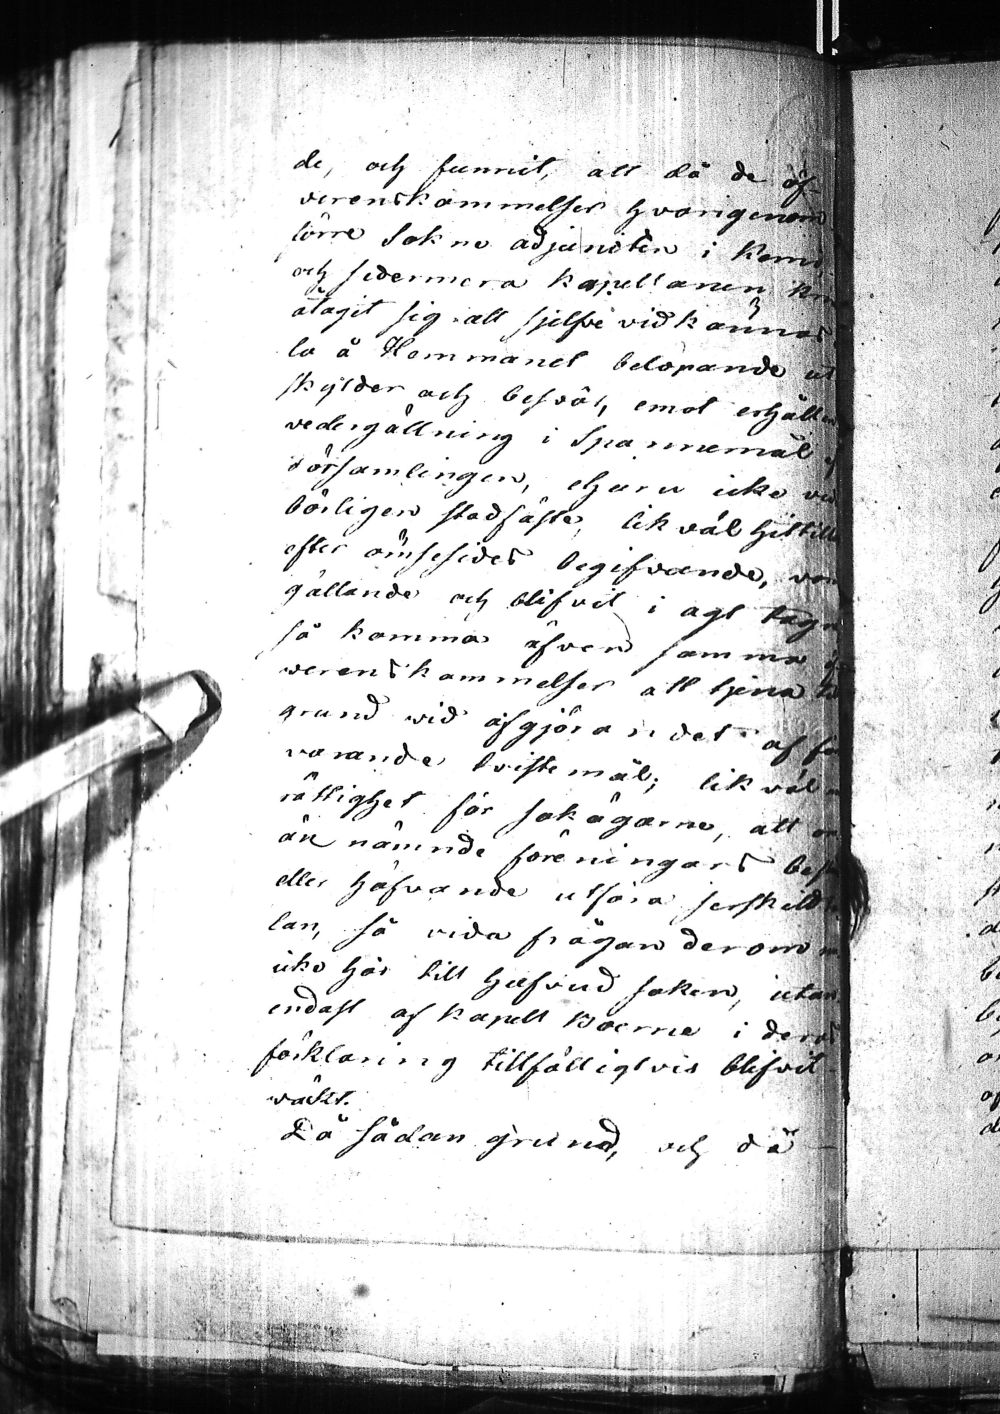 de, och funnit, att då de öf-
verenskommelser hvarigenom
förre Sokne adjuncten i Kemi
och sedermera kapellanen
åtagit sig att sjelfve vidkännas
å Hemmanet belöpande ut
skylder och besvär, emot erhållen
vedergällning i Spannemål af
församlingen, ehuru icke ved
börligen stadfäste, likväl hittills
efter ömsesides begifvande, vari
gällande och blifvit i agt tagn
så komma äfven samma öf
verenskommelser att tjena til
grund vid afgörandet af för
varande tvistemål; likväl m
rättighet för sakägarne, att om
än nämnde föreningars bestå
eller häfvande utföra serskeld ta
lan, så vida frågan derom n
icke hör till hufvud saken, utan
endast af kapell boerne i deras
förklaring tillfälligtvis blifvit
väckt.
På sådan grund, och då